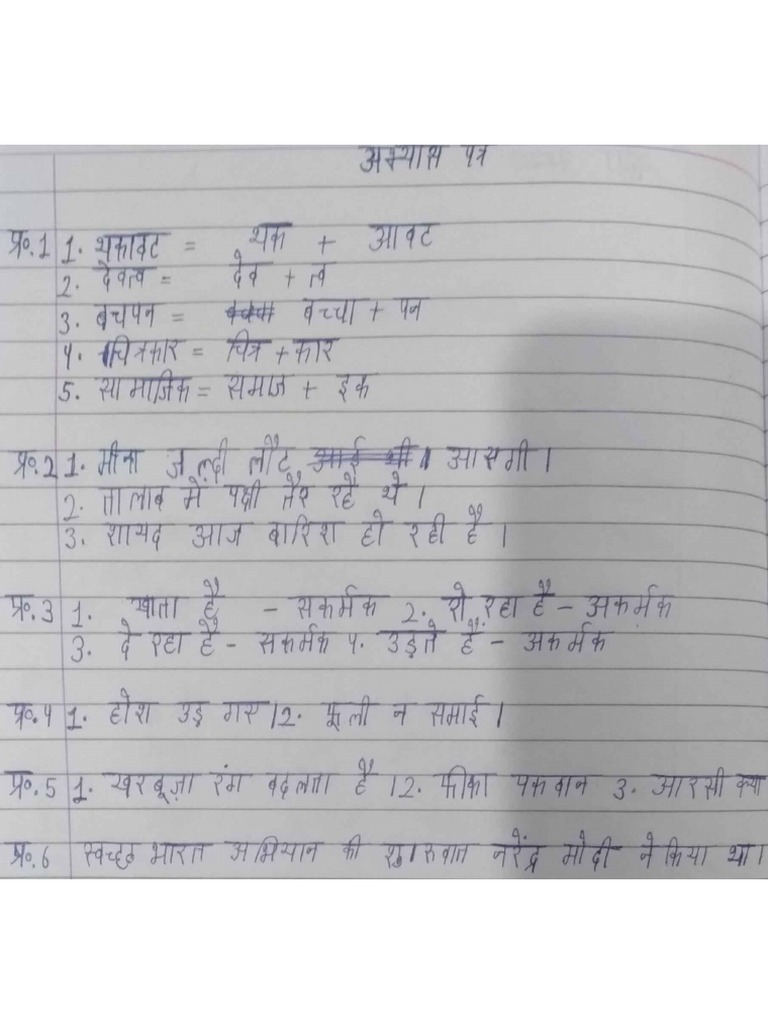 अभ्यास पत्र
प्र०.1 1. थकावट = थक + आवट
2. देवत्व = देव + त्व
3. बचपन = बच्चा + पन
4. चित्रकार = चित्र + कार
5. सामाजिक = समाज + इक
प्र०.2 1. मीना जल्दी लौट आई थी। आसगी।
2. तालाब में पक्षी तैर रहे थे।
3. शायद आज बारिश हो रही है।
प्र०.3 1. खाता है - सकर्मक 2. रो रहा है - अकर्मक
3. दे रहा है - सकर्मक 4. उड़ते हैं - अकर्मक
प्र०.4 1. होश उड़ गस। 2. फूली न समाई।
प्र०.5 1. खरबूज़ा रंग बदलता है। 2. फीका पकवान 3. आरसी क्या
प्र०.6 स्वच्छ भारत अभियान की शुरुवात नरेंद्र मोदी ने किया था।